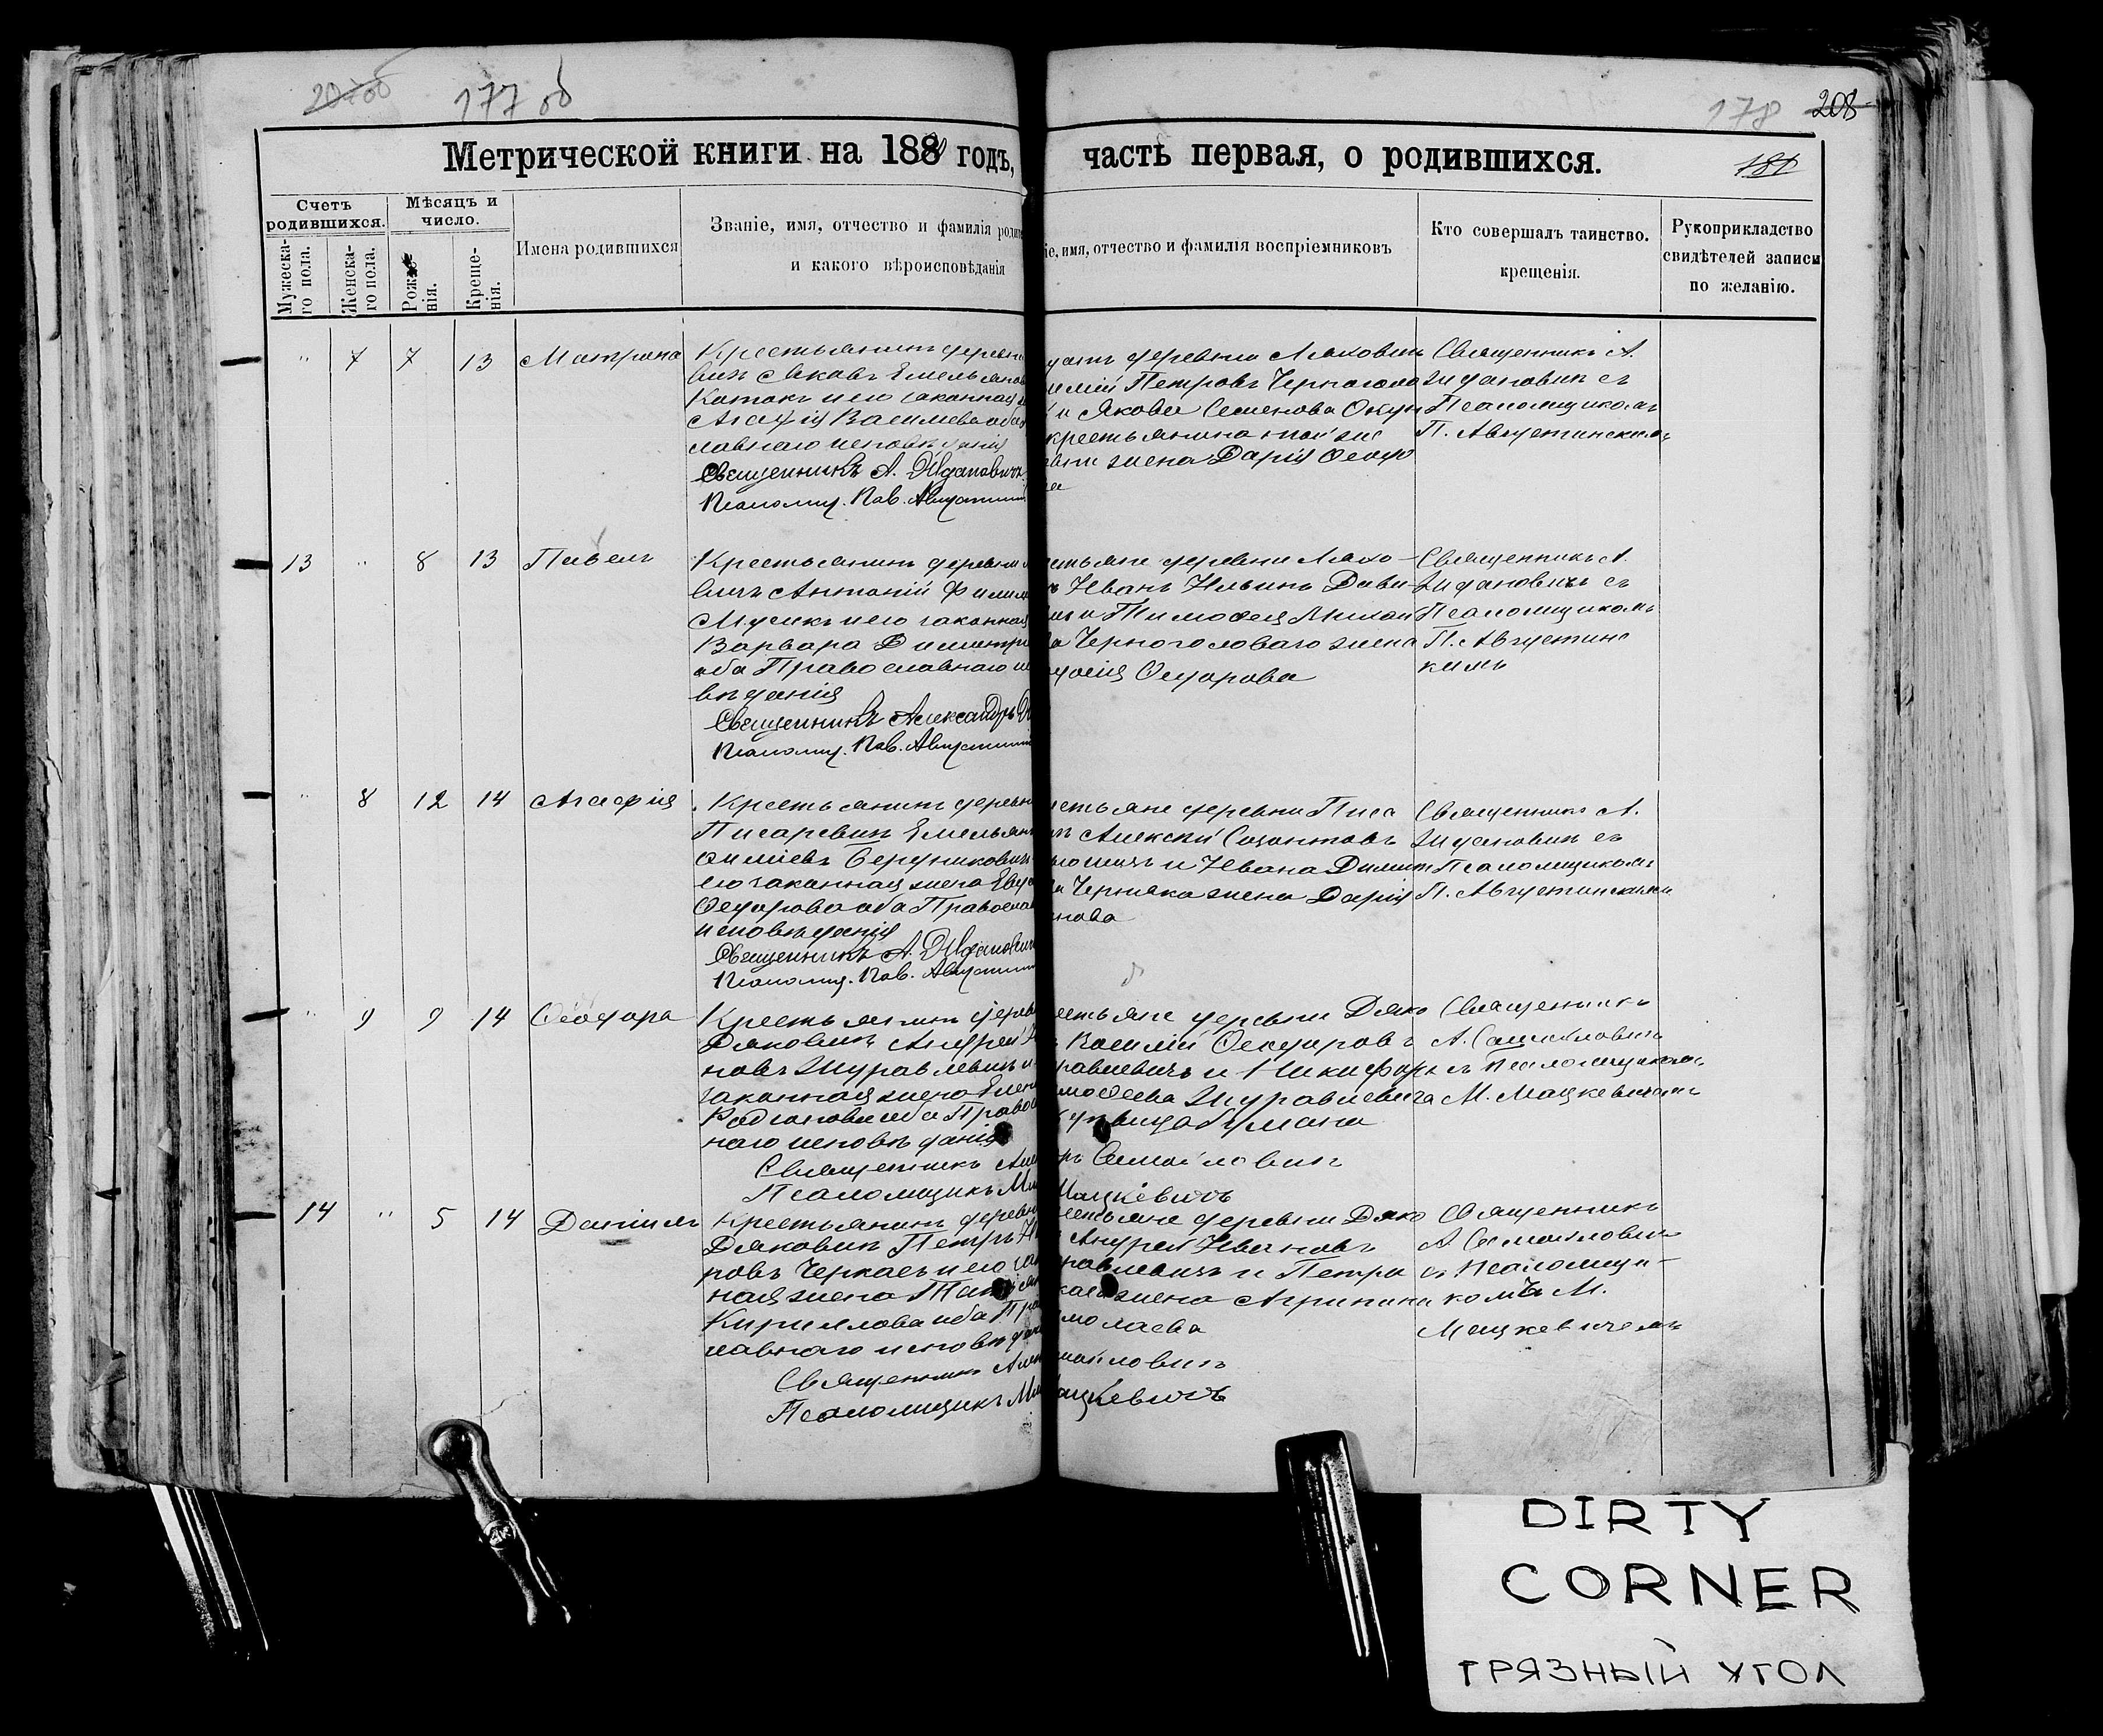 207об 177 об
178 208
Метрической книги на 188 годъ, часть первая, о родившихся.
181
Счетъ родившихся.
Мужеска-
го пола.
Женска-
го пола.
Мѣсяцъ и
число.
Рожде-
нія.
Креще-
нія.
Имена родившихся
Званіе, имя, отчество и фамилія роди
и какого вѣроисповѣданія
іе, имя, отчество и фамилія воспріемниковъ
Кто совершалъ таинство.
крещенія.
Рукоприкладство
свидѣтелей записи
по желанію.
" 7 7 13 Матрона
Крестьянинъ деревни
вичъ Яковъ Емельянов
Коток и его законная
Агафія Васильева оба
лавнаго исповѣданія
Священникъ А. Ждановичъ
Псаломщ. Пав. Августин
деревни Ляхович
имій Петровъ Черноголо
и Якова Семенова Окун
крестьянина той же
вни жена Дарія Ѳеодо
ва
Священникъ А.
Ждановичъ съ
Псаломщикомъ
П. Августинскимъ
13 " 8 13 Павелъ
Крестьянинъ деревни
вичъ Антоній Филим
его законная
Варвара Димитрі
оба Православнаго ис
вѣданія
Священникъ Александръ Ж
Псаломщ. Пав. Августин
стьяне деревни Ляхо-
ъ Иванъ Ильинъ Дави-
и Тимоѳея Михаи
Черноголоваго жена
досія Ѳедорова
Священникъ А.
Ждановичъ съ
Псаломщикомъ
П. Августинс
кимъ
" 8 12 14 Агафія
Крестьянинъ деревн
Писаревичъ Емельян
Бердникович
его законная жена Евдо
Ѳедорова оба Православ
исповѣданія
Священникъ А. Ждановичъ
Псаломщ. Пав. Августин
стьяне деревни Писа
чъ Алексѣй Созонтовъ
и Ивана Димит
Черняка жена Дарія
нова
Священникъ А.
Ждановичъ съ
Псаломщикомъ
П. Августинскимъ
" 9 9 14 Ѳеодора
Крестьянинъ дерев
Дяковичъ Андрей И
новъ Журавлевичъ и
законная жена Елена
Родіонова оба Правос
наго исповѣданія
Священникъ Але
Псаломщикъ Ми
стьяне деревни Дяко
Василій Ѳеодоровъ
равлевичъ и Никифор
моѳеева Журавлевича
ръ Самойловичъ
Мацкевичъ
Священникъ
А. Самойловичъ
съ Псаломщикомъ
М. Мацкевичемъ
14 " 5 14 Даніилъ
Крестьянинъ деревн
Дяковичъ Петръ
ровъ Черкасъ и его зак
ная жена Татіян
Кириллова оба Пра
лавнаго исповѣдан
Священникъ Але
Псаломщикъ Ми
стьяне деревни Дяко
Андрей Ивановъ
равлевичъ и Петра
каса жена Агрипина
молаева
мойловичъ
ацкевичъ
Священникъ
А. Самойлович
съ Псаломщи-
комъ М.
Мацкевичемъ
DIRTY
CORNER
ГРЯЗНЫЙ УГОЛ